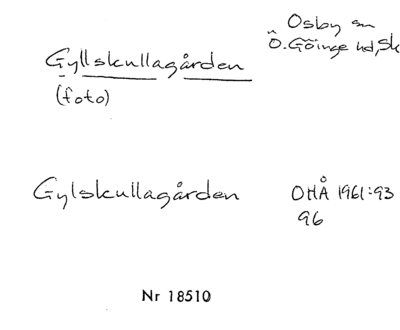 Osby sn
Ö. Göinge hd, Sk
Gyllskullagården
(foto)
Gylskullagården
OHÅ 1961:93
96
Nr 18510